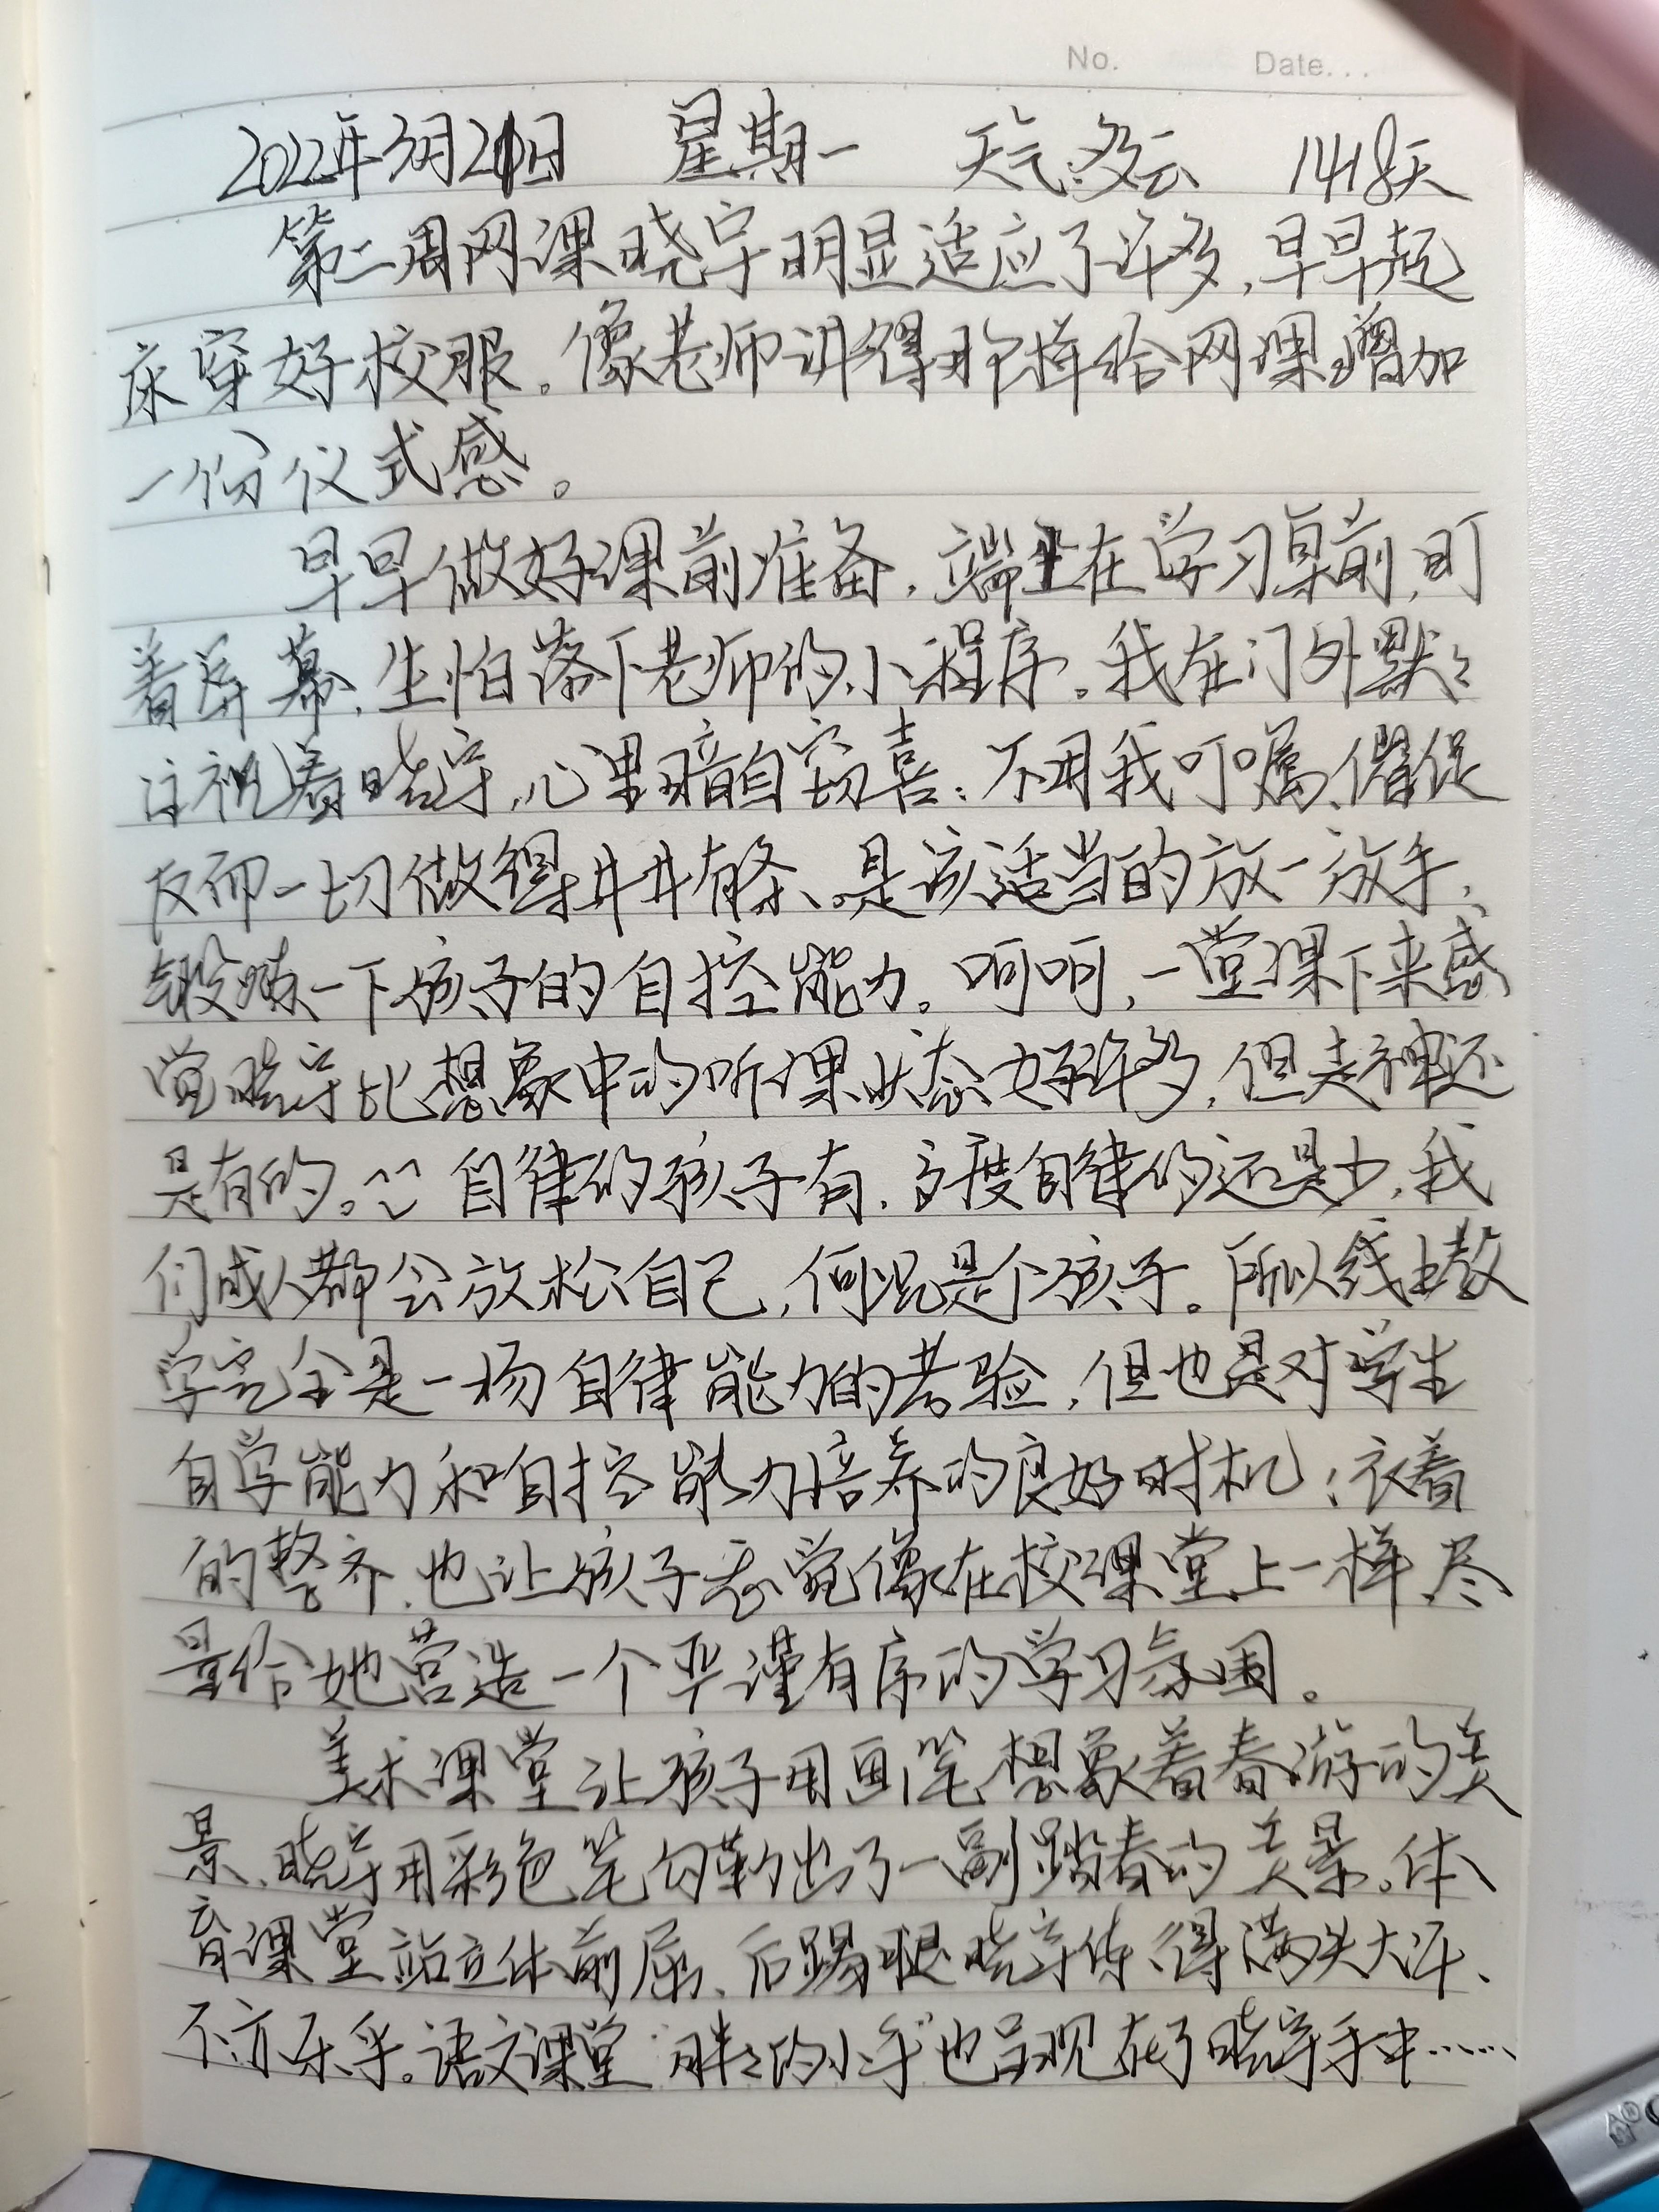 No. Date...
2022年3月21日 星期一 天气:多云 1418天
第二周网课晓宇明显适应了许多,早早起
床穿好校服。像老师讲得那样给网课增加
一份仪式感。
早早做好课前准备,端坐在学习桌前,盯
着屏幕,生怕落下老师的小程序。我在门外默々
注视着晓宇,心里暗自窃喜:不用我叮嘱、催促
反而一切做得井井有条、是该适当的放一放手,
锻炼一下孩子的自控能力。呵呵,一堂课下来感
觉晓宇比想象中的听课状态好许多,但走神还
是有的。自律的孩子有,高度自律的还是少,我
们成人都会放松自己,何况是个孩子。所以线上教
学完全是一场自律能力的考验,但也是对学生
自学能力和自控能力培养的良好时机;衣着
的整齐,也让孩子感觉像在校课堂上一样,尽
量给她营造一个严谨有序的学习氛围。
美术课堂让孩子用画笔想象着春游的美
景,晓宇用彩色笔勾勒出了一副踏春的美景。体
育课堂站立体前屈、后踢腿晓宇练得满头大汗、
不亦乐乎。语文课堂"胖々的小手"也呈现在了晓宇手中……